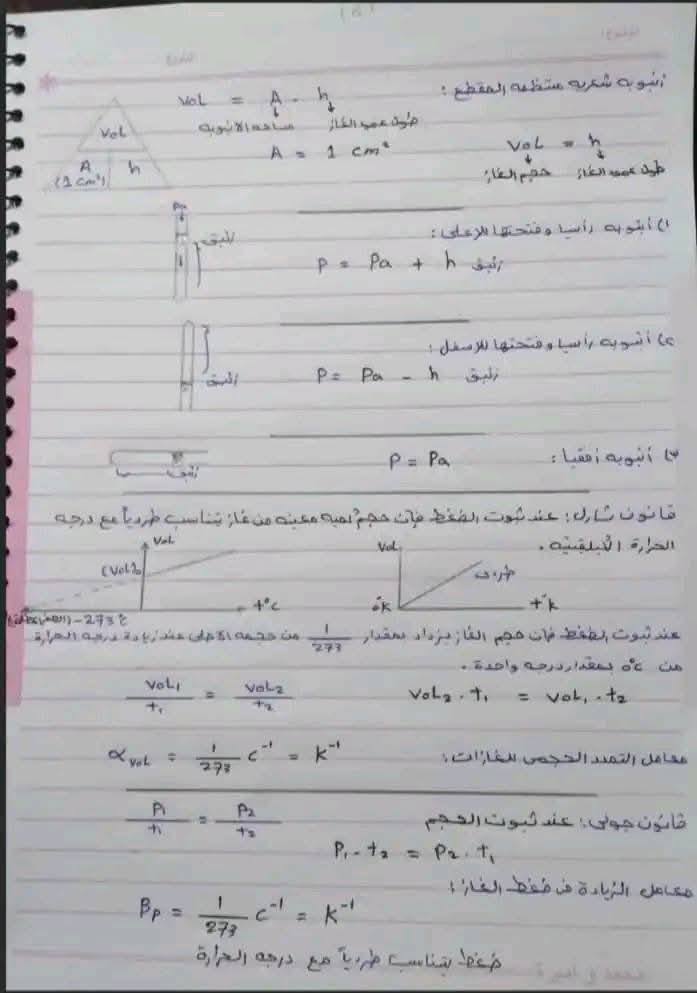 أنبوبه شعريه منتظمه المقطع :
VOL = A . h
مساحه الانبوبه طول عمود الغاز
A = 1 cm²
VOL = h
حجم الغاز طول عمود الغاز
VOL
A h
(1 cm²)
Pa
زئبق
١) أنبوبه رأسيا وفتحتها للاعلى :
P = Pa + h زئبق
٢) أنبوبه رأسيا وفتحتها للاسفل :
P = Pa - h زئبق
زئبق
٣) أنبوبه افقيا :
P = Pa
زئبق
قانون شارل : عند ثبوت الضغط فإن حجم كميه معينه من غاز يتناسب طردياً مع درجه
الحرارة الكلفنيه .
VOL
(VOL)₀
-273°C
t°C
VOL
طردي
0°K
t°K
عند ثبوت الضغط فإن حجم الغاز يزداد بمقدار 1/273 من حجمه الاصلى عند زيادة درجه الحرارة
من 0°C بمقدار درجه واحدة .
VOL₁/t₁ = VOL₂/t₂
VOL₂ . t₁ = VOL₁ . t₂
معامل التمدد الحجمى للغازات :
α VOL = 1/273 C⁻¹ = K⁻¹
P₁/t₁ = P₂/t₂
قانون جولى : عند ثبوت الحجم
P₁ . t₂ = P₂ . t₁
معامل الزيادة فى ضغط الغاز :
βP = 1/273 C⁻¹ = K⁻¹
ضغط يتناسب طردياً مع درجه الحرارة